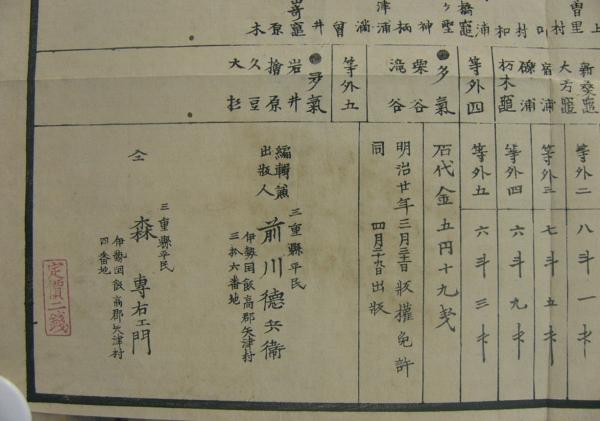 上
曽里
村
口
村
和
浦
橋竈
ヶ
聖
神
津浦
柄
満
曽
井
竈
原
木
新桑竈
大方竈
宿浦
礫浦
朽木竈
等外四
●多氣
栗谷
滝谷
等外五
●多氣
岩井
檜原
久豆
大杉
等外二 八斗一才
等外三 七斗五才
等外四 六斗九才
等外五 六斗三才
石代金五円十九戋
明治廿年三月三十一日版權免許
同 四月二十九日出版
編輯兼
出版人
三重縣平民
前川德兵衛
伊勢国飯高郡矢津村
三拾六番地
仝
三重縣平民
森專右エ門
伊勢国飯高郡矢津村
四番地
定價二錢